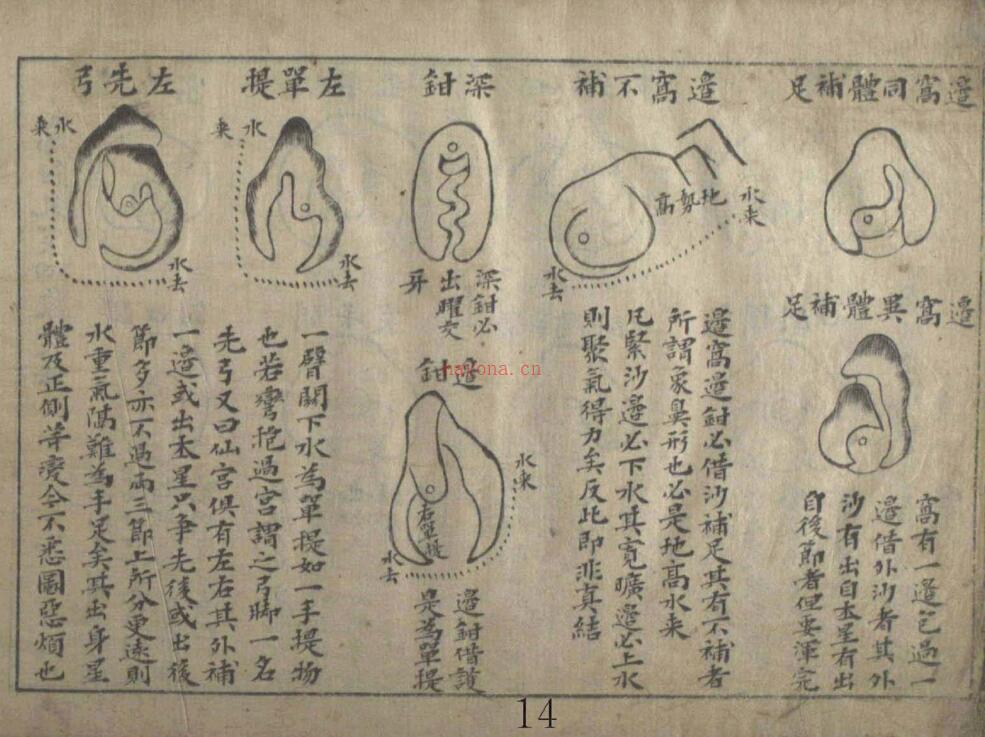 邉窩同體補足
邉窩異體補足
窩有一邉包過一
邉借外沙者其外
沙有出自本星有出
自後節者但要渾完
邉窩不補
地勢高
水来
水去
邉窩邉鉗必借沙補足其有不補者
所謂象鼻形也必是地高水来
凡緊沙邉必下水其寛曠邉必上水
則聚氣得力矣反此即非真結
深鉗
深鉗必
出曜交
牙
邉鉗
水来
右單提
水去
邉鉗借護
是為單提
左單提
水来
水去
一臂關下水為單提如一手提物
也若彎抱過宫謂之弓脚一名
先弓又曰仙宫俱有左右其外補
一邉或出本星只争先後或出後
節多亦不過兩三節上所分更遠則
水重氣隔難為手足矣其出身星
體及正側等変今不悉圖惡煩也
左先弓
水来
水去
hayona.cn
14